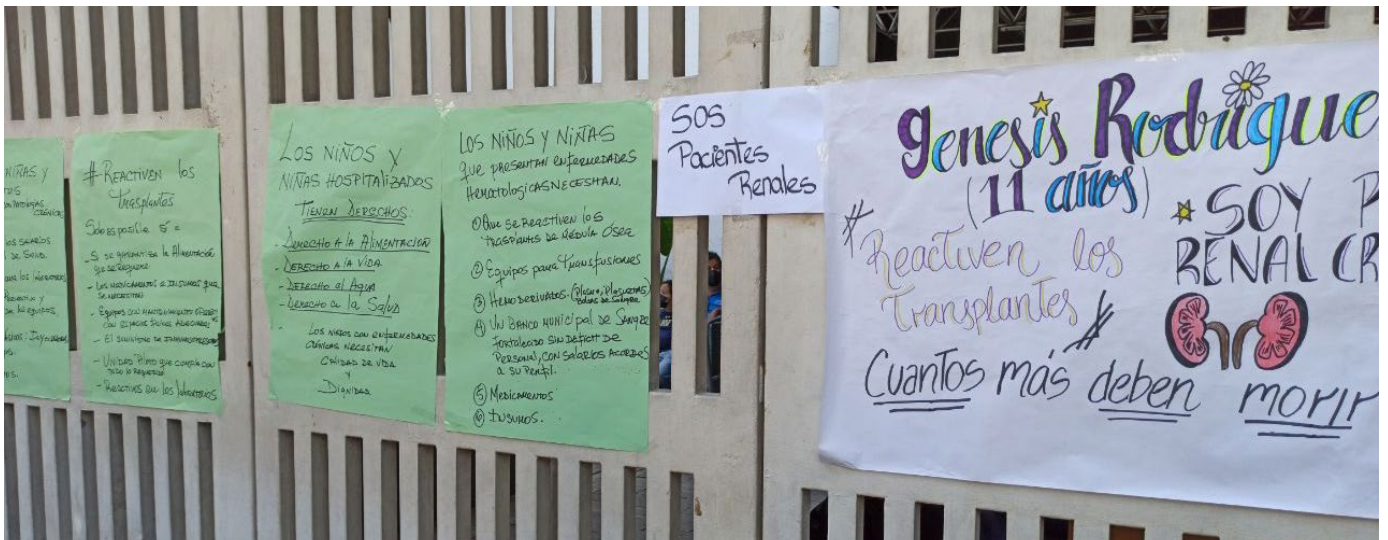 NIÑAS Y
CRÓNICAS
LOS SALARIOS
DE SALUD.
# REACTIVEN los
Trasplantes
Solo es posible si =
- Si se garantiza la Alimentación
que se Requiere
- Los medicamentos e Insumos que
se necesitan
- Equipos con
con espacios físicos Adecuados
- El suministro de Inmunosupresores
- Unidad
todo lo Requerido
- Reactivos en los laboratorios
LOS NIÑOS Y
NIÑAS HOSPITALIZADOS
TIENEN DERECHOS:
- DERECHO A LA ALIMENTACIÓN
- DERECHO A LA VIDA
- DERECHO al AGUA
- DERECHO a la SALUD
- LOS NIÑOS CON ENFERMEDADES
CRÓNICAS NECESITAN
CALIDAD DE VIDA
Y
DIGNIDAD
LOS NIÑOS Y NIÑAS
que PRESENTAN ENFERMEDADES
HEMATOLOGICAS NECESITAN.
① Que se REACTIVEN los
TRASPLANTES DE MÉDULA ÓSEA
② Equipos para TRANSFUSIONES
③ HEMODERIVADOS. (Plasma, Plaquetas,
Bolsas de Sangre
④ UN BANCO MUNICIPAL DE SANGRE
fortalecido SIN DÉFICIT DE
PERSONAL, CON SALARIOS ACORDES
a su Perfil.
⑤ MEDICAMENTOS
⑥ INSUMOS.
SOS
Pacientes
Renales
genesis Rodrigue
(11 años)
* SOY P
RENAL CR
# Reactiven los
Transplantes #
Cuantos más deben morir